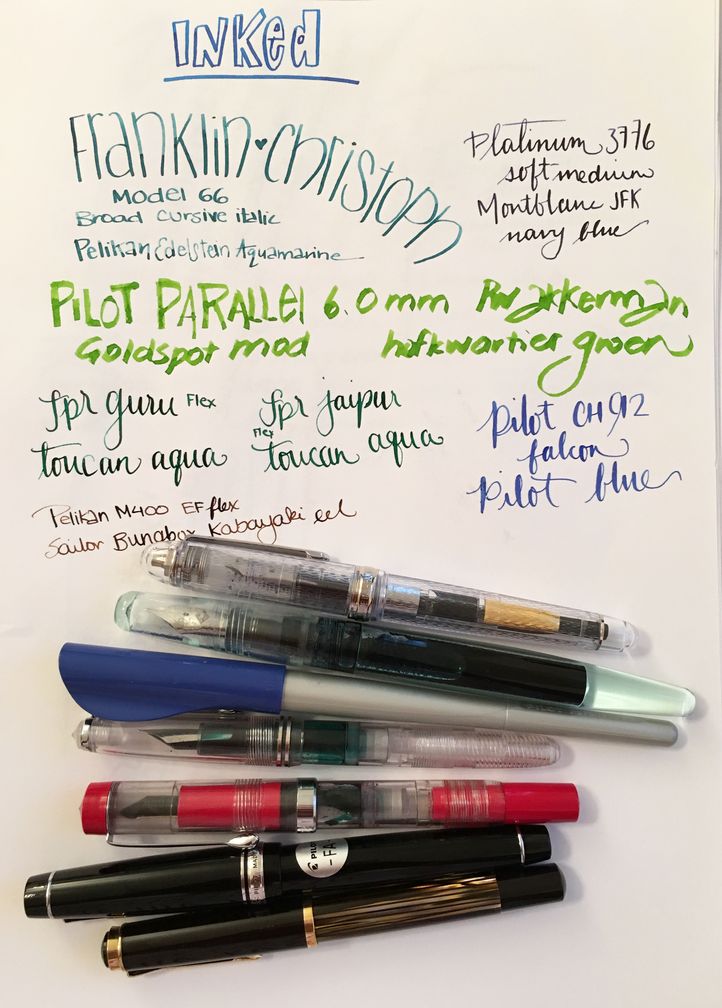 INKed
Franklin·Christoph
Model 66
Broad cursive italic
Pelikan Edelstein Aquamarine
Platinum 3776
soft medium
Montblanc JFK
navy blue
PILOT PARALLEL 6.0 mm
Goldspot mod
Akkerman
hofkwartier groen
fpr guru Flex
toucan aqua
fpr jaipur
Flex
toucan aqua
Pilot CH912
falcon
Pilot blue
Pelikan M400 EF flex
Sailor Bungbox Kabayaki eel
PILOT
-FA-